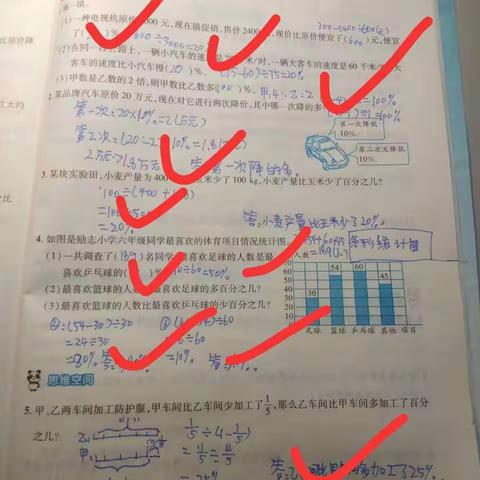 第一填。
(1)一种电视机原价3000元,现在搞促销,售价2400元,现价比原价便宜了(600)元,便宜
300-2400=600(元)
了( )%。
比原价降
(2)在同一段公路上,一辆小汽车的速度是 千米/时,一辆大客车的速度是60千米/时,大
客车的速度比小汽车慢(20)%。
75-60)÷75=20%
(3)甲数是乙数的2倍,则甲数比乙数多( )%。甲:4 乙:2
=100%
2.某品牌汽车原价20万元,现在对它进行两次降价,其中哪一次降的多
第一次:20×10%=2(万元)
第一次降低
10%。
第2次:(20-2)×10%=1.8(万元)
第二次又降低
10%。
2万元>1.8万元 答:第一次降的多。
3.某块实验田,小麦产量为400 玉米少了100 kg,小麦产量比玉米少了百分之几?
100÷(400+100)
=100÷500
=20%
答:小麦产量比玉米少了20%。
4.如图是励志小学六年级同学最喜欢的体育项目情况统计图。
条形统计图
(1)一共调查了(189)名同学, 最喜欢足球的人数是最
喜欢乒乓球的( )%。 30÷60=50%
(2)最喜欢篮球的人数比最喜欢足球的多百分之几?
(3)最喜欢篮球的人数比最喜欢乒乓球的少百分之几?
人数
60
50
40
30
20
10
0
30 54 60 45
足球 篮球 乒乓球 其他 项目
(54-30)÷30
=24÷30
=80%
÷60
=6÷60
=10%
思维空间
5.甲、乙两车间加工防护服,甲车间比乙车间少加工了1/5,那么乙车间比甲车间多加工了百分
之几?
乙:
甲:
1/5÷(1-1/5)
=1/5÷4/5
=25%
加工了25%。